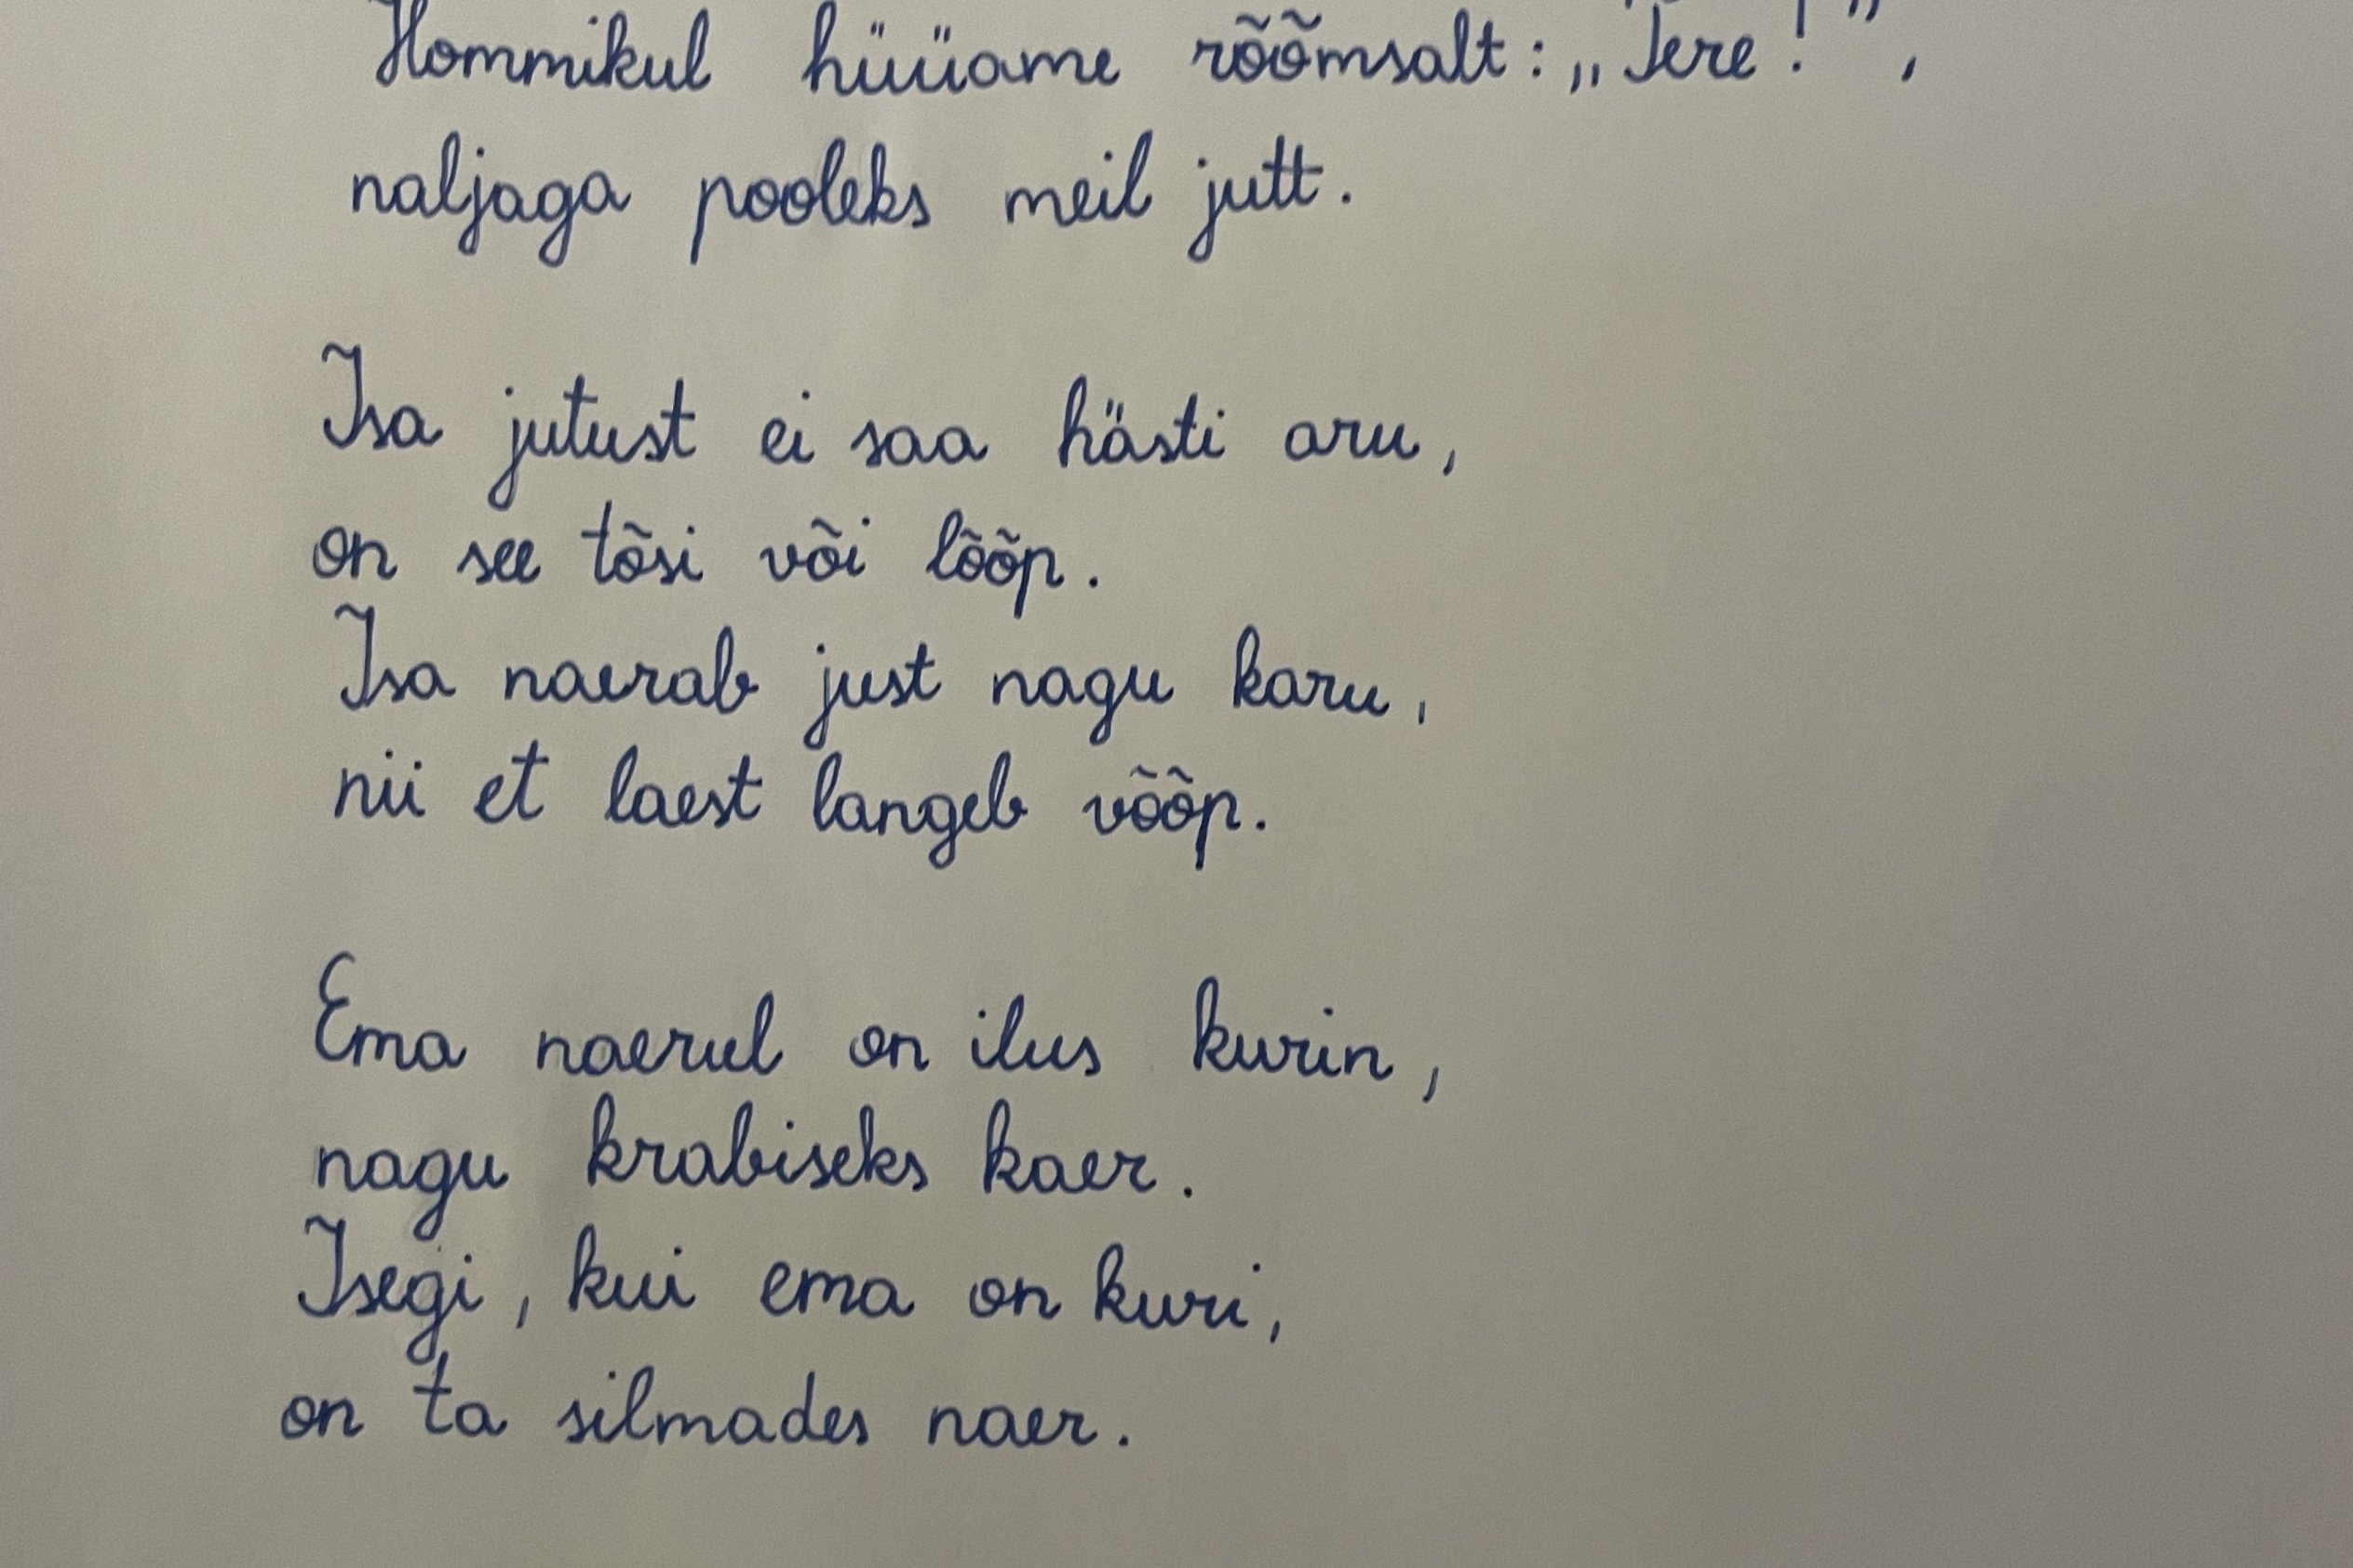 Hommikul hüüame rõõmsalt: „Tere!”,
naljaga pooleks meil jutt.
Isa jutust ei saa hästi aru,
on see tõsi või lõõp.
Isa naerab just nagu karu,
nii et laest langeb võõp.
Ema naerul on ilus kurin,
nagu krabiseks kaer.
Isegi, kui ema on kuri,
on ta silmades naer.